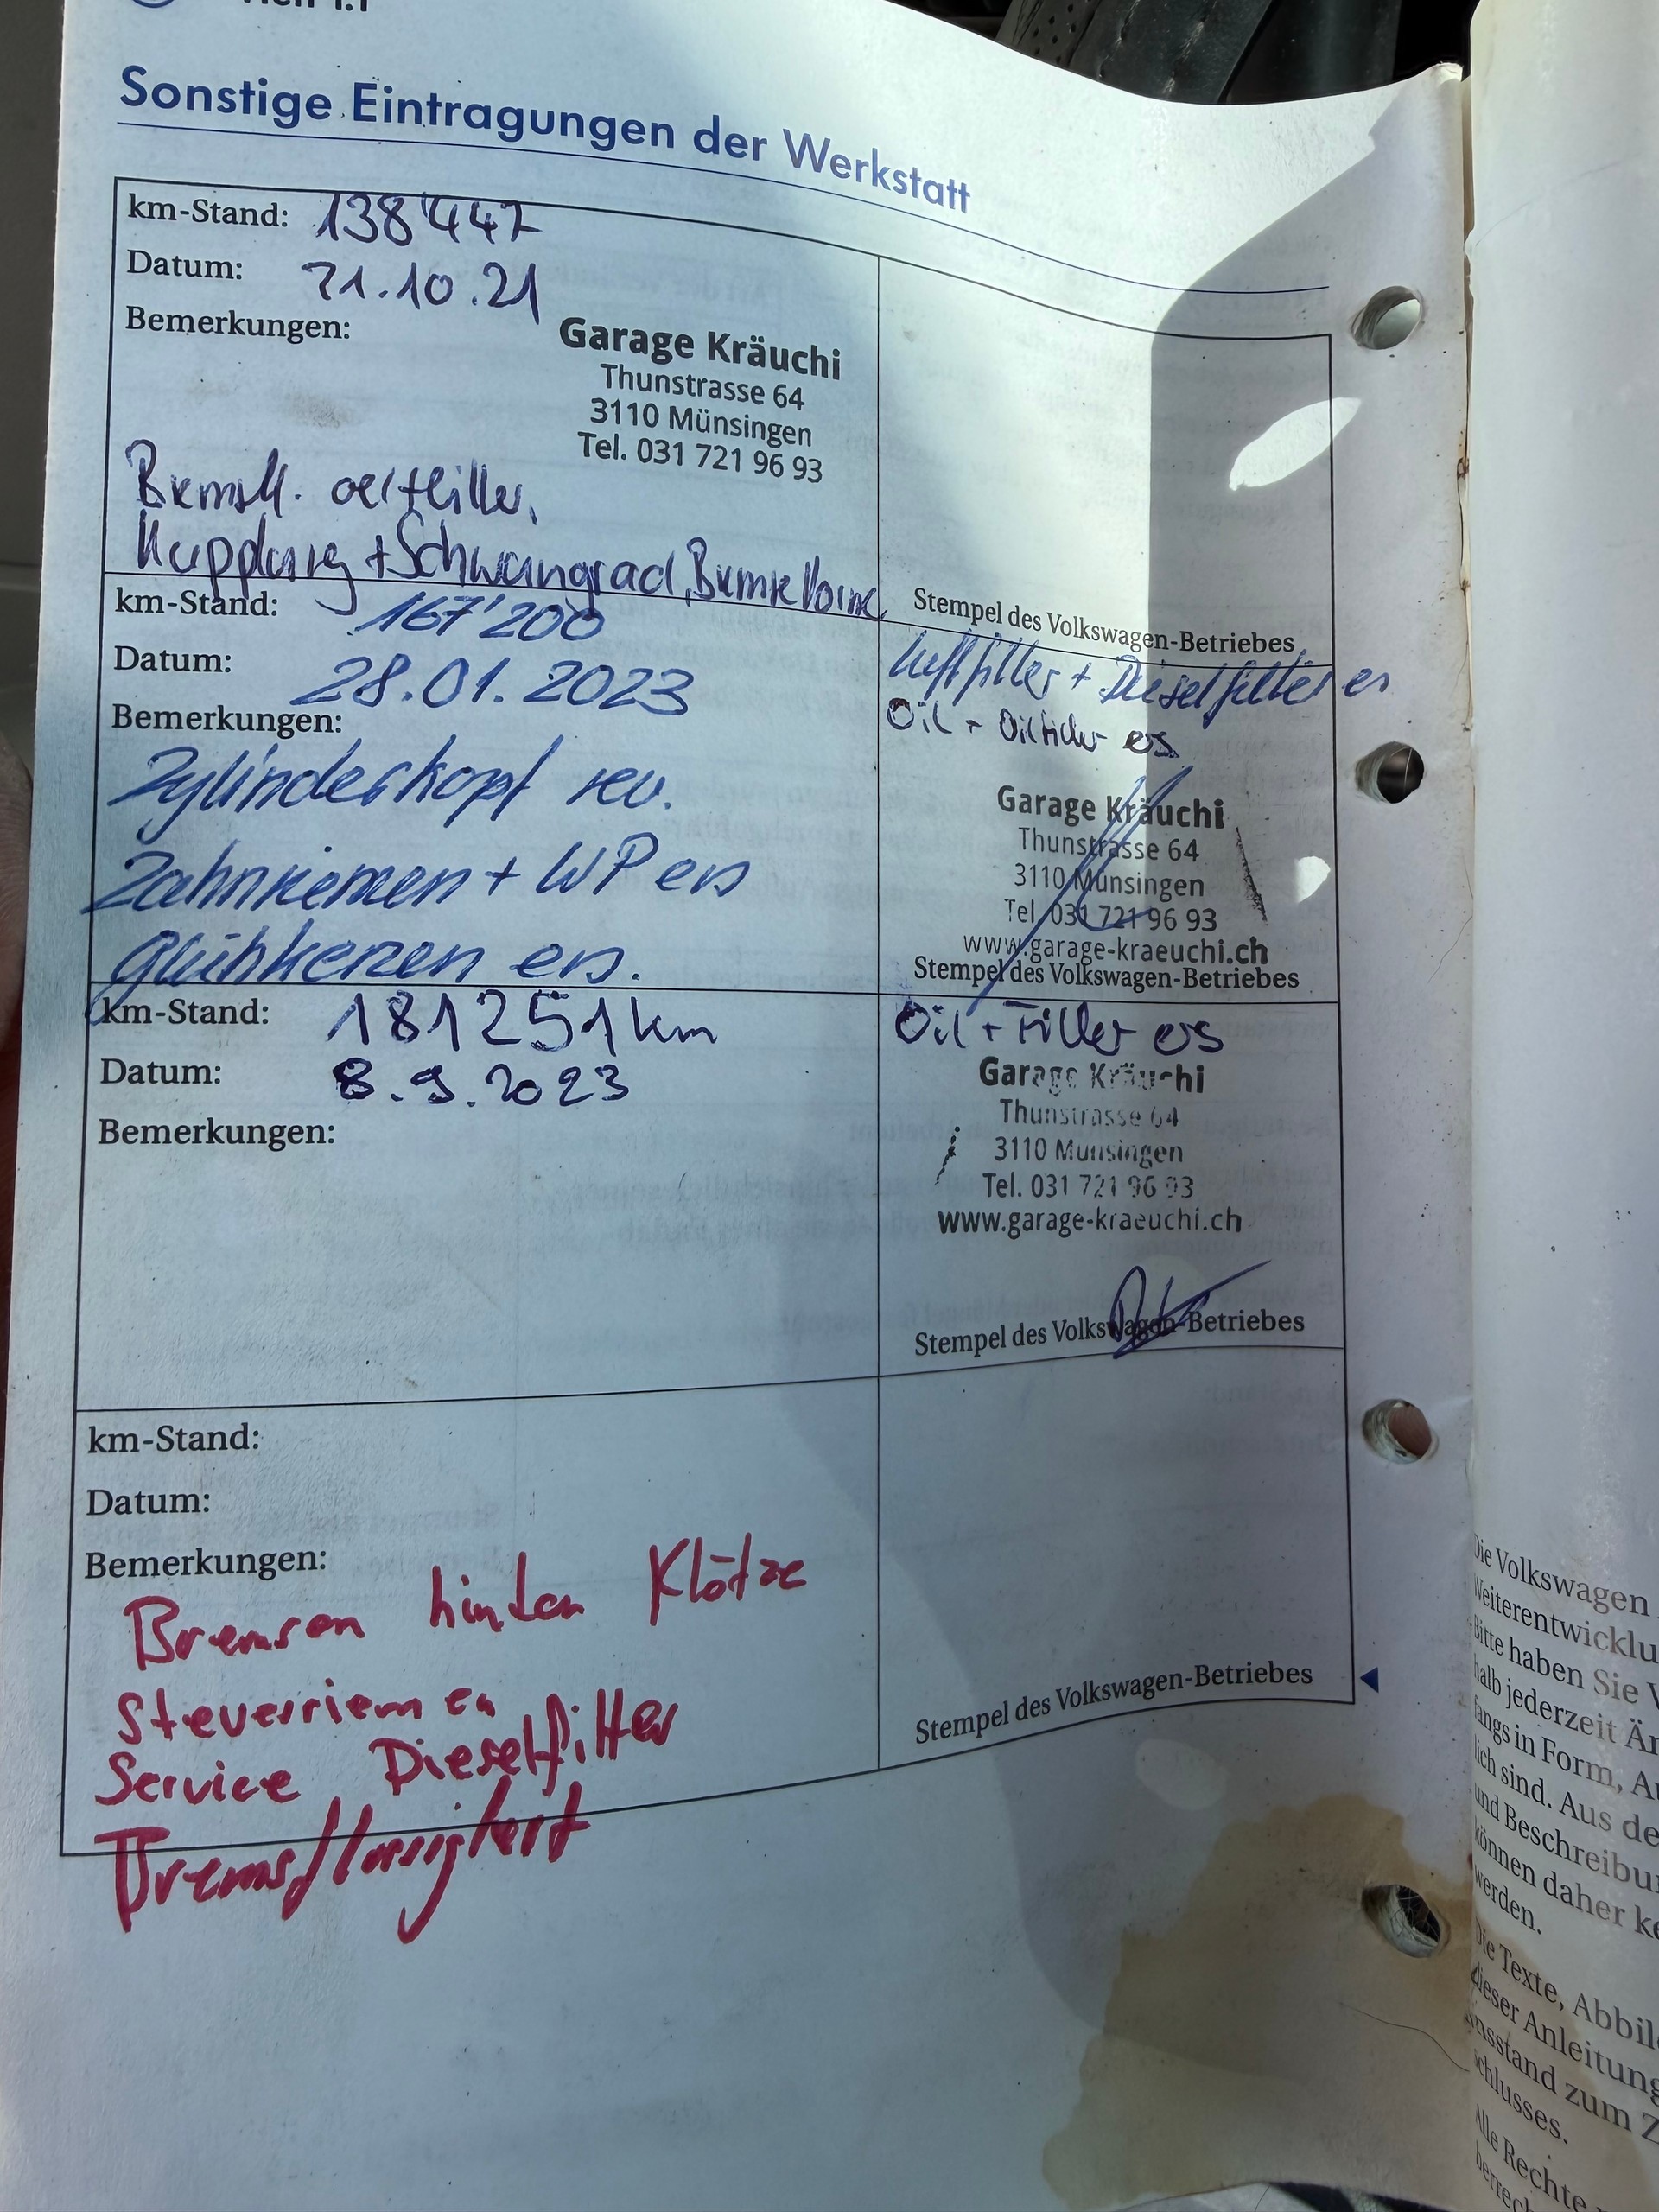 Sonstige Eintragungen der Werkstatt
km-Stand: 138'447
Datum: 21.10.21
Bemerkungen:
Garage Kräuchi
Thunstrasse 64
3110 Münsingen
Tel. 031 721 96 93
Kupplung + Schwungrad, Bremse Vorne,
Stempel des Volkswagen-Betriebes
km-Stand: 167'200
Datum: 28.01.2023
Bemerkungen:
Zylinderkopf rev.
Zahnriemen + WP ers
Glühkerzen ers.
Luftfilter + Dieselfilter er
Oil + Oilfilter ers
Garage Kräuchi
Thunstrasse 64
3110 Münsingen
Tel. 031 721 96 93
www.garage-kraeuchi.ch
Stempel des Volkswagen-Betriebes
km-Stand: 181251 km
Datum: 8.9.2023
Bemerkungen:
Oil + Filter ers
Garage Kräuchi
Thunstrasse 64
3110 Münsingen
Tel. 031 721 96 93
www.garage-kraeuchi.ch
Stempel des Volkswagen-Betriebes
km-Stand:
Datum:
Bemerkungen:
Bremsen hinten Klötze
Steuerriemen
Service Dieselfilter
Bremsflüssigkeit
Stempel des Volkswagen-Betriebes
Die Volkswagen
Weiterentwicklu
Bitte haben Sie V
halb jederzeit Är
fangs in Form, Au
lich sind. Aus de
und Beschreibu
können daher ke
werden.
Die Texte, Abbil
dieser Anleitung
nsstand zum Z
schlusses.
Alle Rechte